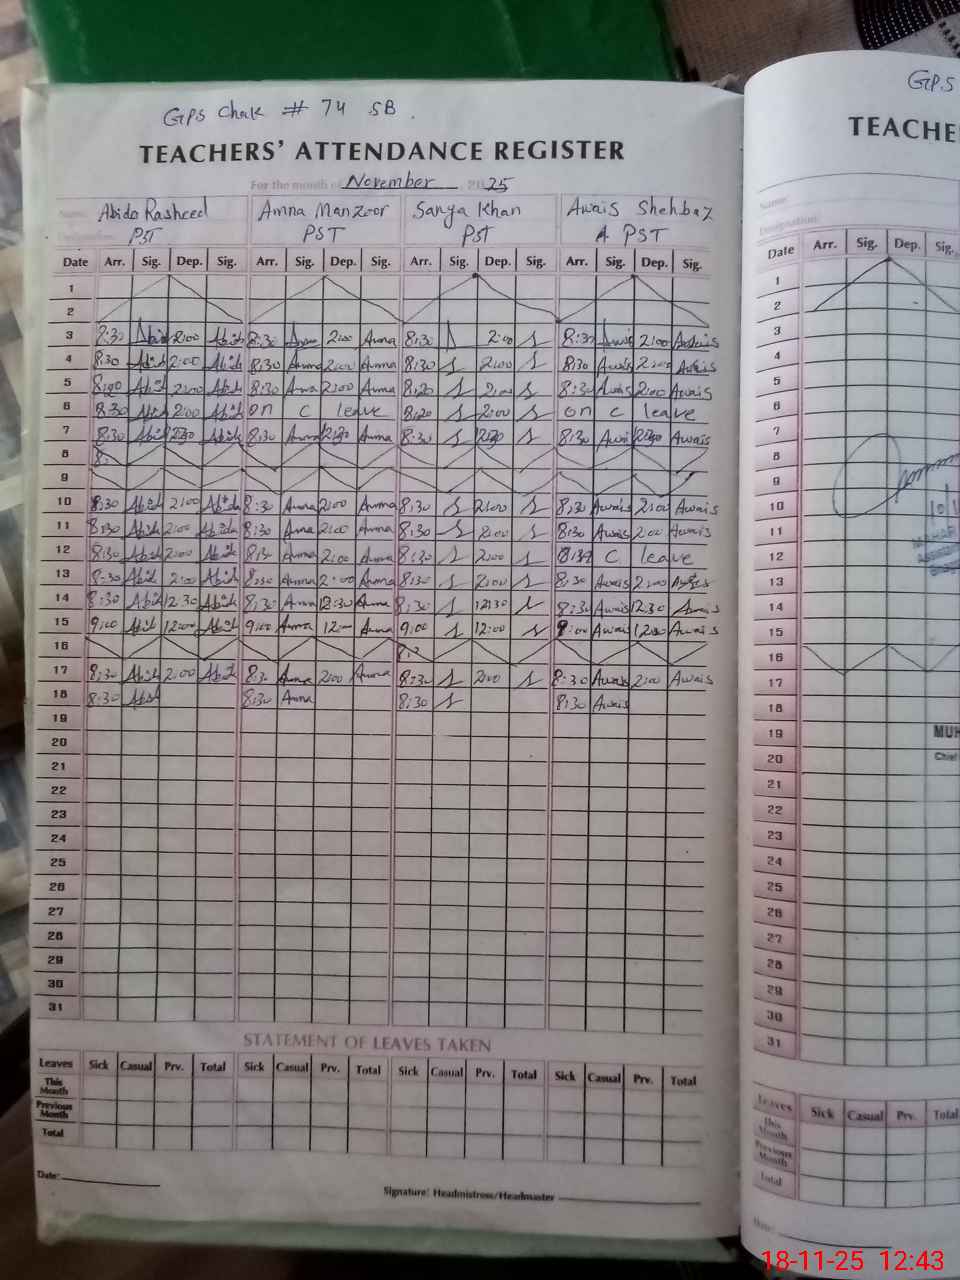 GPS Chak # 74 SB.
TEACHERS' ATTENDANCE REGISTER
For the month of November 2025
Name: Abida Rasheed Amna Manzoor Sanya Khan Awais Shehbaz
PST PST PST A PST
Date Arr. Sig. Dep. Sig. Arr. Sig. Dep. Sig. Arr. Sig. Dep. Sig. Arr. Sig. Dep. Sig.
1
2
3 8:30 2:00 8:30 2:00 Amna 8:30 2:00 8:30 Awais 2:00 Awais
4 8:30 2:00 8:30 Amna 2:00 Amna 8:30 2:00 8:30 Awais 2:00 Awais
5 8:20 2:00 8:30 Amna 2:00 Amna 8:20 2:00 8:30 Awais 2:00 Awais
6 8:30 2:00 on c leave 8:20 2:00 on c leave
7 8:30 8:30 Amna Amna 8:30 8:30 Awais Awais
8
9
10 8:30 2:00 8:30 Amna 2:00 Amna 8:30 2:00 8:30 Awais 2:00 Awais
11 8:30 2:00 8:30 Amna 2:00 Amna 8:30 2:00 8:30 Awais 2:00 Awais
12 8:30 2:00 8:30 Amna 2:00 Amna 8:30 2:00 c leave
13 8:30 2:00 8:30 Amna 2:00 Amna 8:30 2:00 8:30 Awais 2:00
14 8:30 12:30 8:30 Amna 12:30 Amna 8:30 12:30 8:30 Awais 12:30 Awais
15 9:00 12:00 9:00 Amna 12:00 Amna 9:00 12:00 9:00 Awais 12:00 Awais
16
17 8:30 2:00 8:30 Amna 2:00 Amna 8:30 2:00 8:30 Awais 2:00 Awais
18 8:30 8:30 Amna 8:30 8:30 Awais
19
20
21
22
23
24
25
26
27
28
29
30
31
STATEMENT OF LEAVES TAKEN
Leaves Sick Casual Prv. Total Sick Casual Prv. Total Sick Casual Prv. Total Sick Casual Prv. Total
This Month
Previous Month
Total
Date:
Signature: Headmistress/Headmaster
GPS
TEACHE
Name:
Designation:
Date Arr. Sig. Dep. Sig.
1
2
3
4
5
6
7
8
9
10
11
12
13
14
15
16
17
18
19 MUH
20 Chief
21
22
23
24
25
26
27
28
29
30
31
Leaves Sick Casual Prv. Total
This Month
Previous Month
Total
18-11-25 12:43